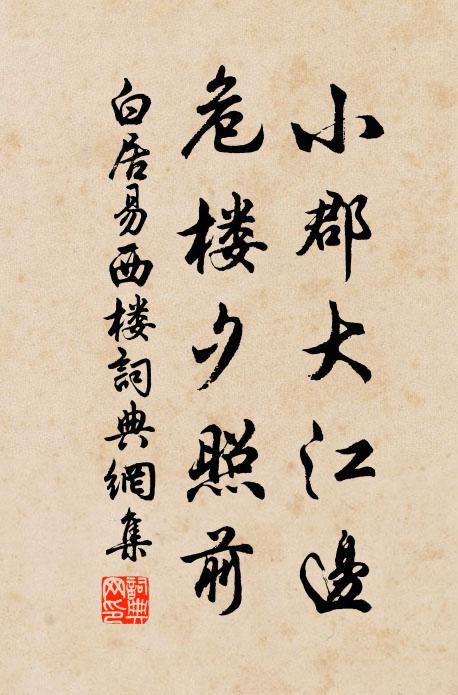 小郡大江邊
危楼夕照前
白居易西楼詞典網集
詞典
网印